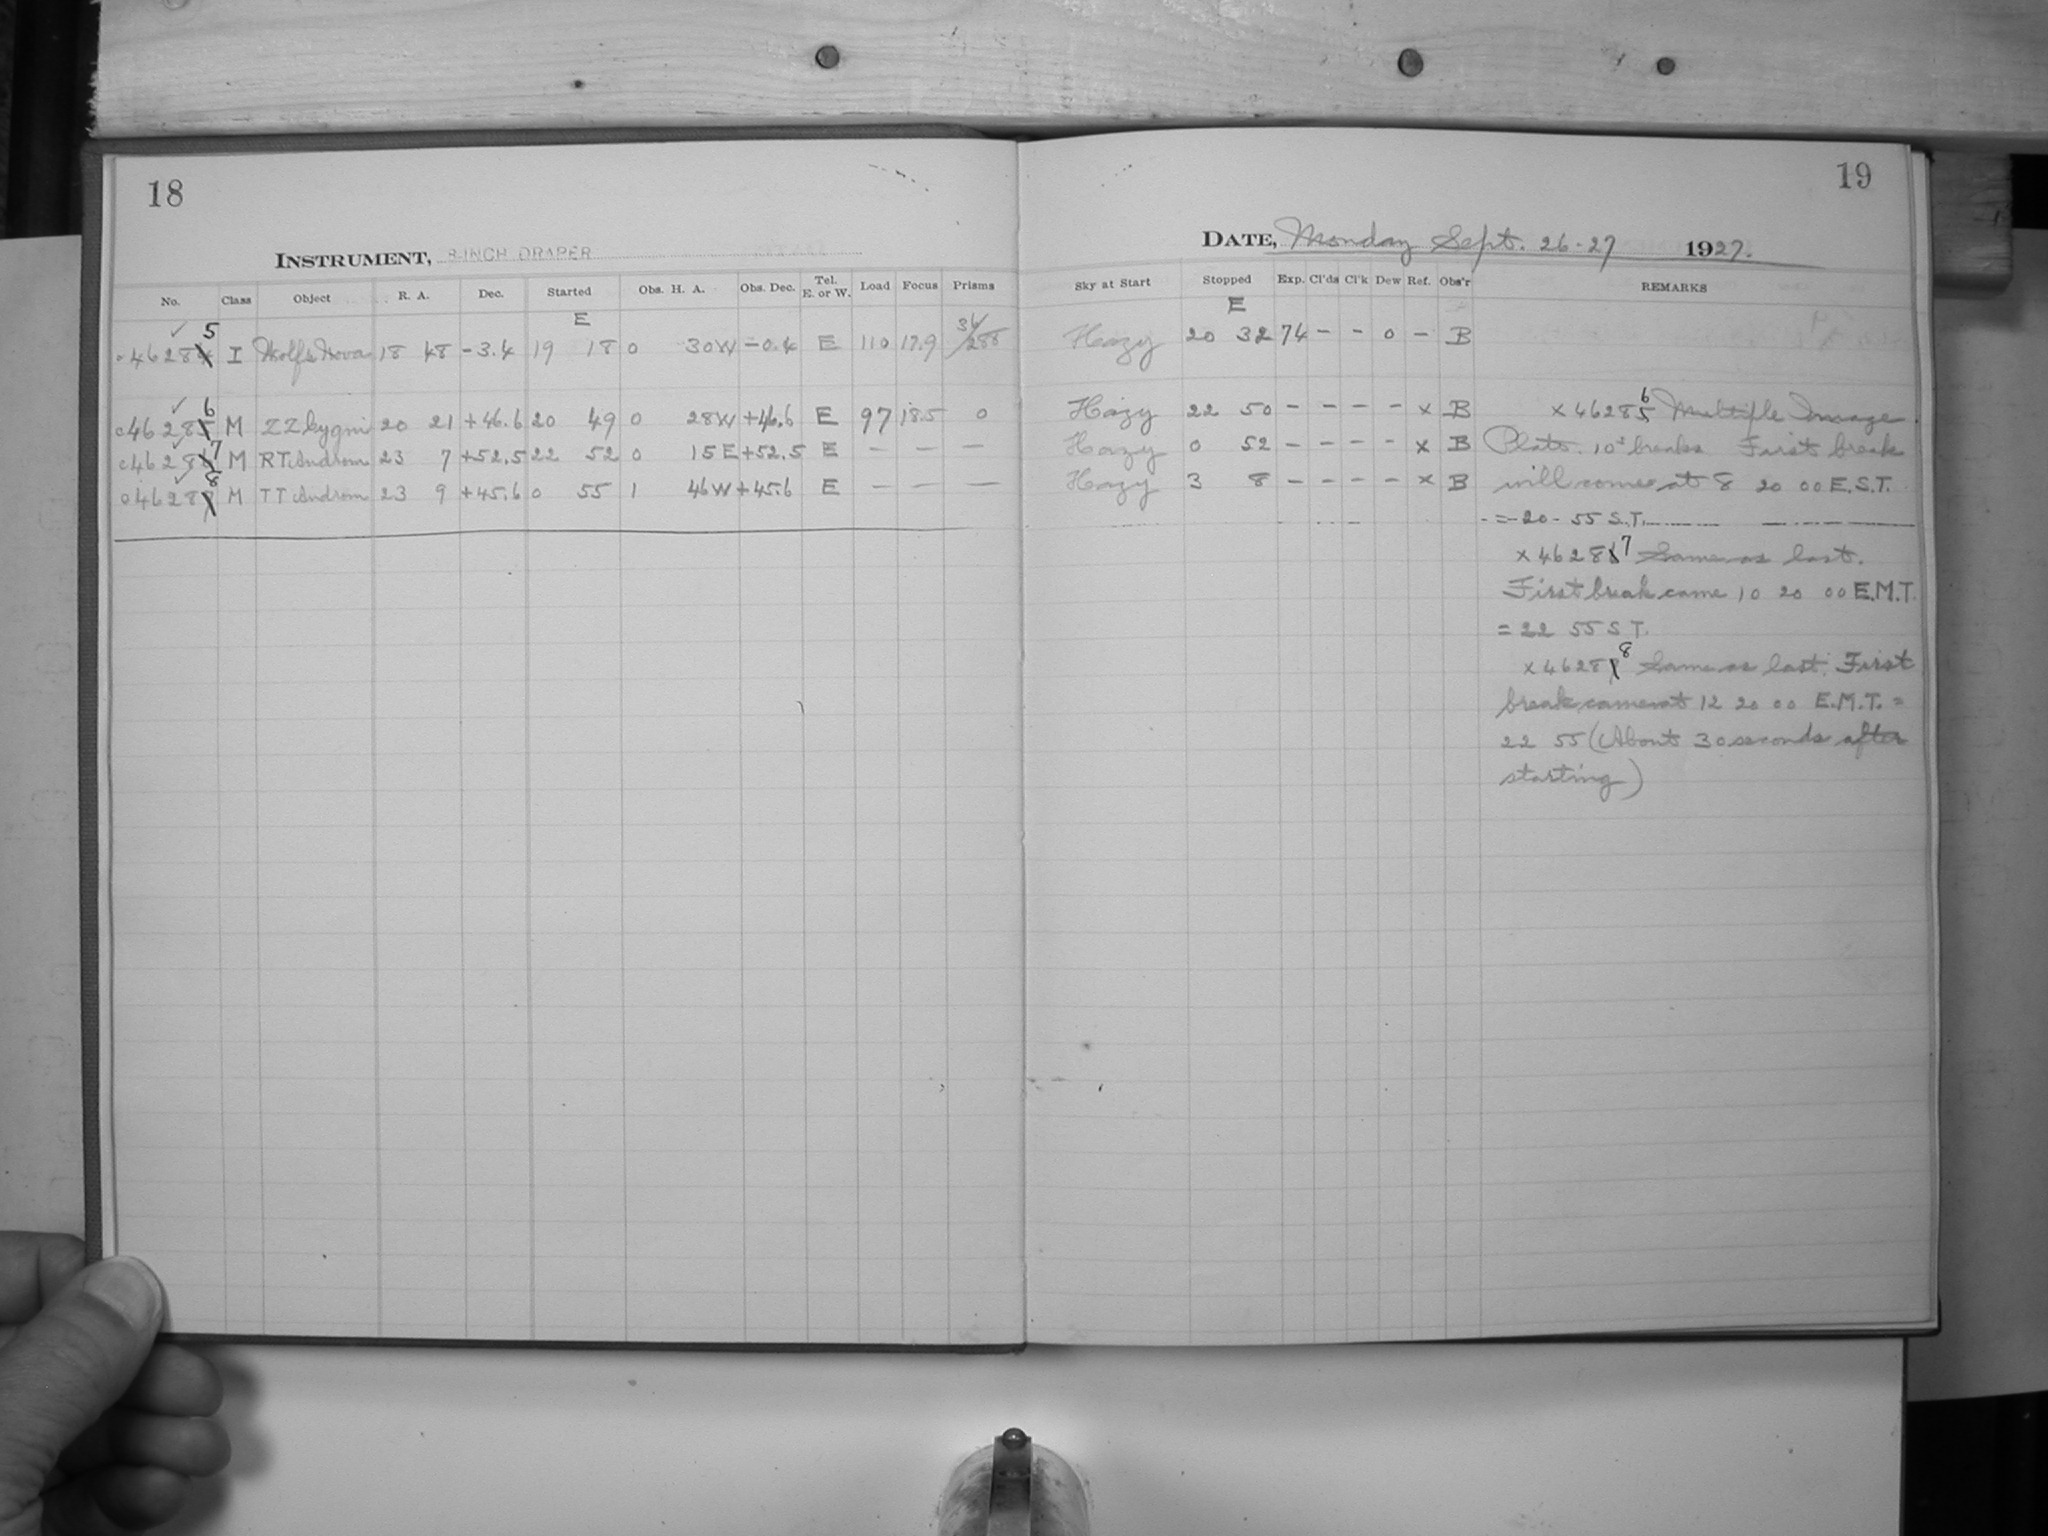 18
19
INSTRUMENT, 8-INCH DRAPER
DATE, Monday Sept. 26-27 1927.
No. Class Object R. A. Dec. Started Obs. H. A. Obs. Dec. Tel. E. or W. Load Focus Prisms
Sky at Start Stopped Exp. Cl'ds Cl'k Dew Ref. Obs'r REMARKS
E E
46284 5 I Wolf's Nova 18 48 -3.4 19 18 0 30W -0.4 E 110 17.9
Hazy 20 32 74 - - 0 - B
46285 6 M ZZ Cygni 20 21 +46.6 20 49 0 28W +46.6 E 97 18.5 0
Hazy 22 50 - - - - x B x 46285 6 Multiple Image
46286 7 M RT Androm 23 7 +52.5 22 52 0 15E +52.5 E - - -
Hazy 0 52 - - - - x B Plate. 10± breaks First break
46287 8 M TT Androm 23 9 +45.6 0 55 1 46W +45.6 E - - -
Hazy 3 8 - - - - x B will come at 8 20 00 E.S.T.
= 20 - 55 S.T.
x 46286 7 Same as last.
First break came 10 20 00 E.M.T.
= 22 55 S.T.
x 46287 8 Same as last. First
break came at 12 20 00 E.M.T. =
22 55 (About 30 seconds after
starting)